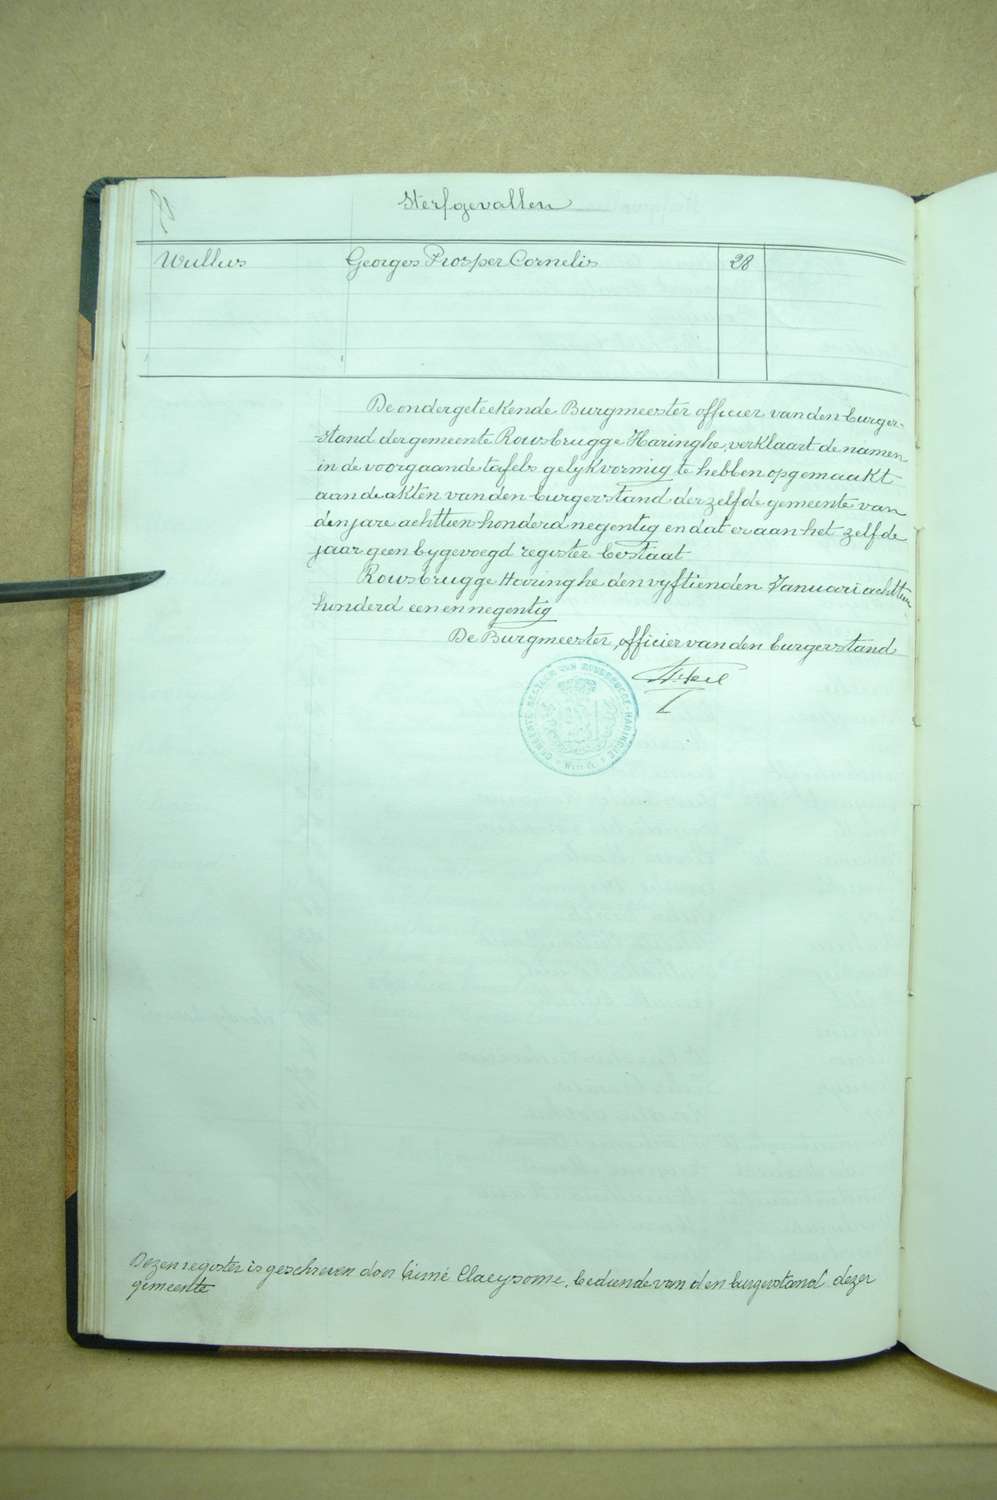 Sterfgevallen
Wullus Georges Prosper Cornelis 28
De ondergeteekende Burgmeester officier van den burger-
stand der gemeente Rousbrugge Haringhe, verklaart de namen
in de voorgaande tafels gelykvormig te hebben opgemaakt
aan de akten van den burgerstand der zelfde gemeente van
den jare achttien honderd negentig en dat er aan het zelfde
jaar geen bygevoegd register bestaat
Rousbrugge Haringhe den vyftienden Januari achttien
honderd een en negentig
De Burgmeester, officier van den burgerstand
GEMEENTE-BESTUUR VAN ROUSBRUGGE-HARINGHE
Dezen register is geschreven door Aimé Claeysoone, bediende van den burgerstand dezer
gemeente